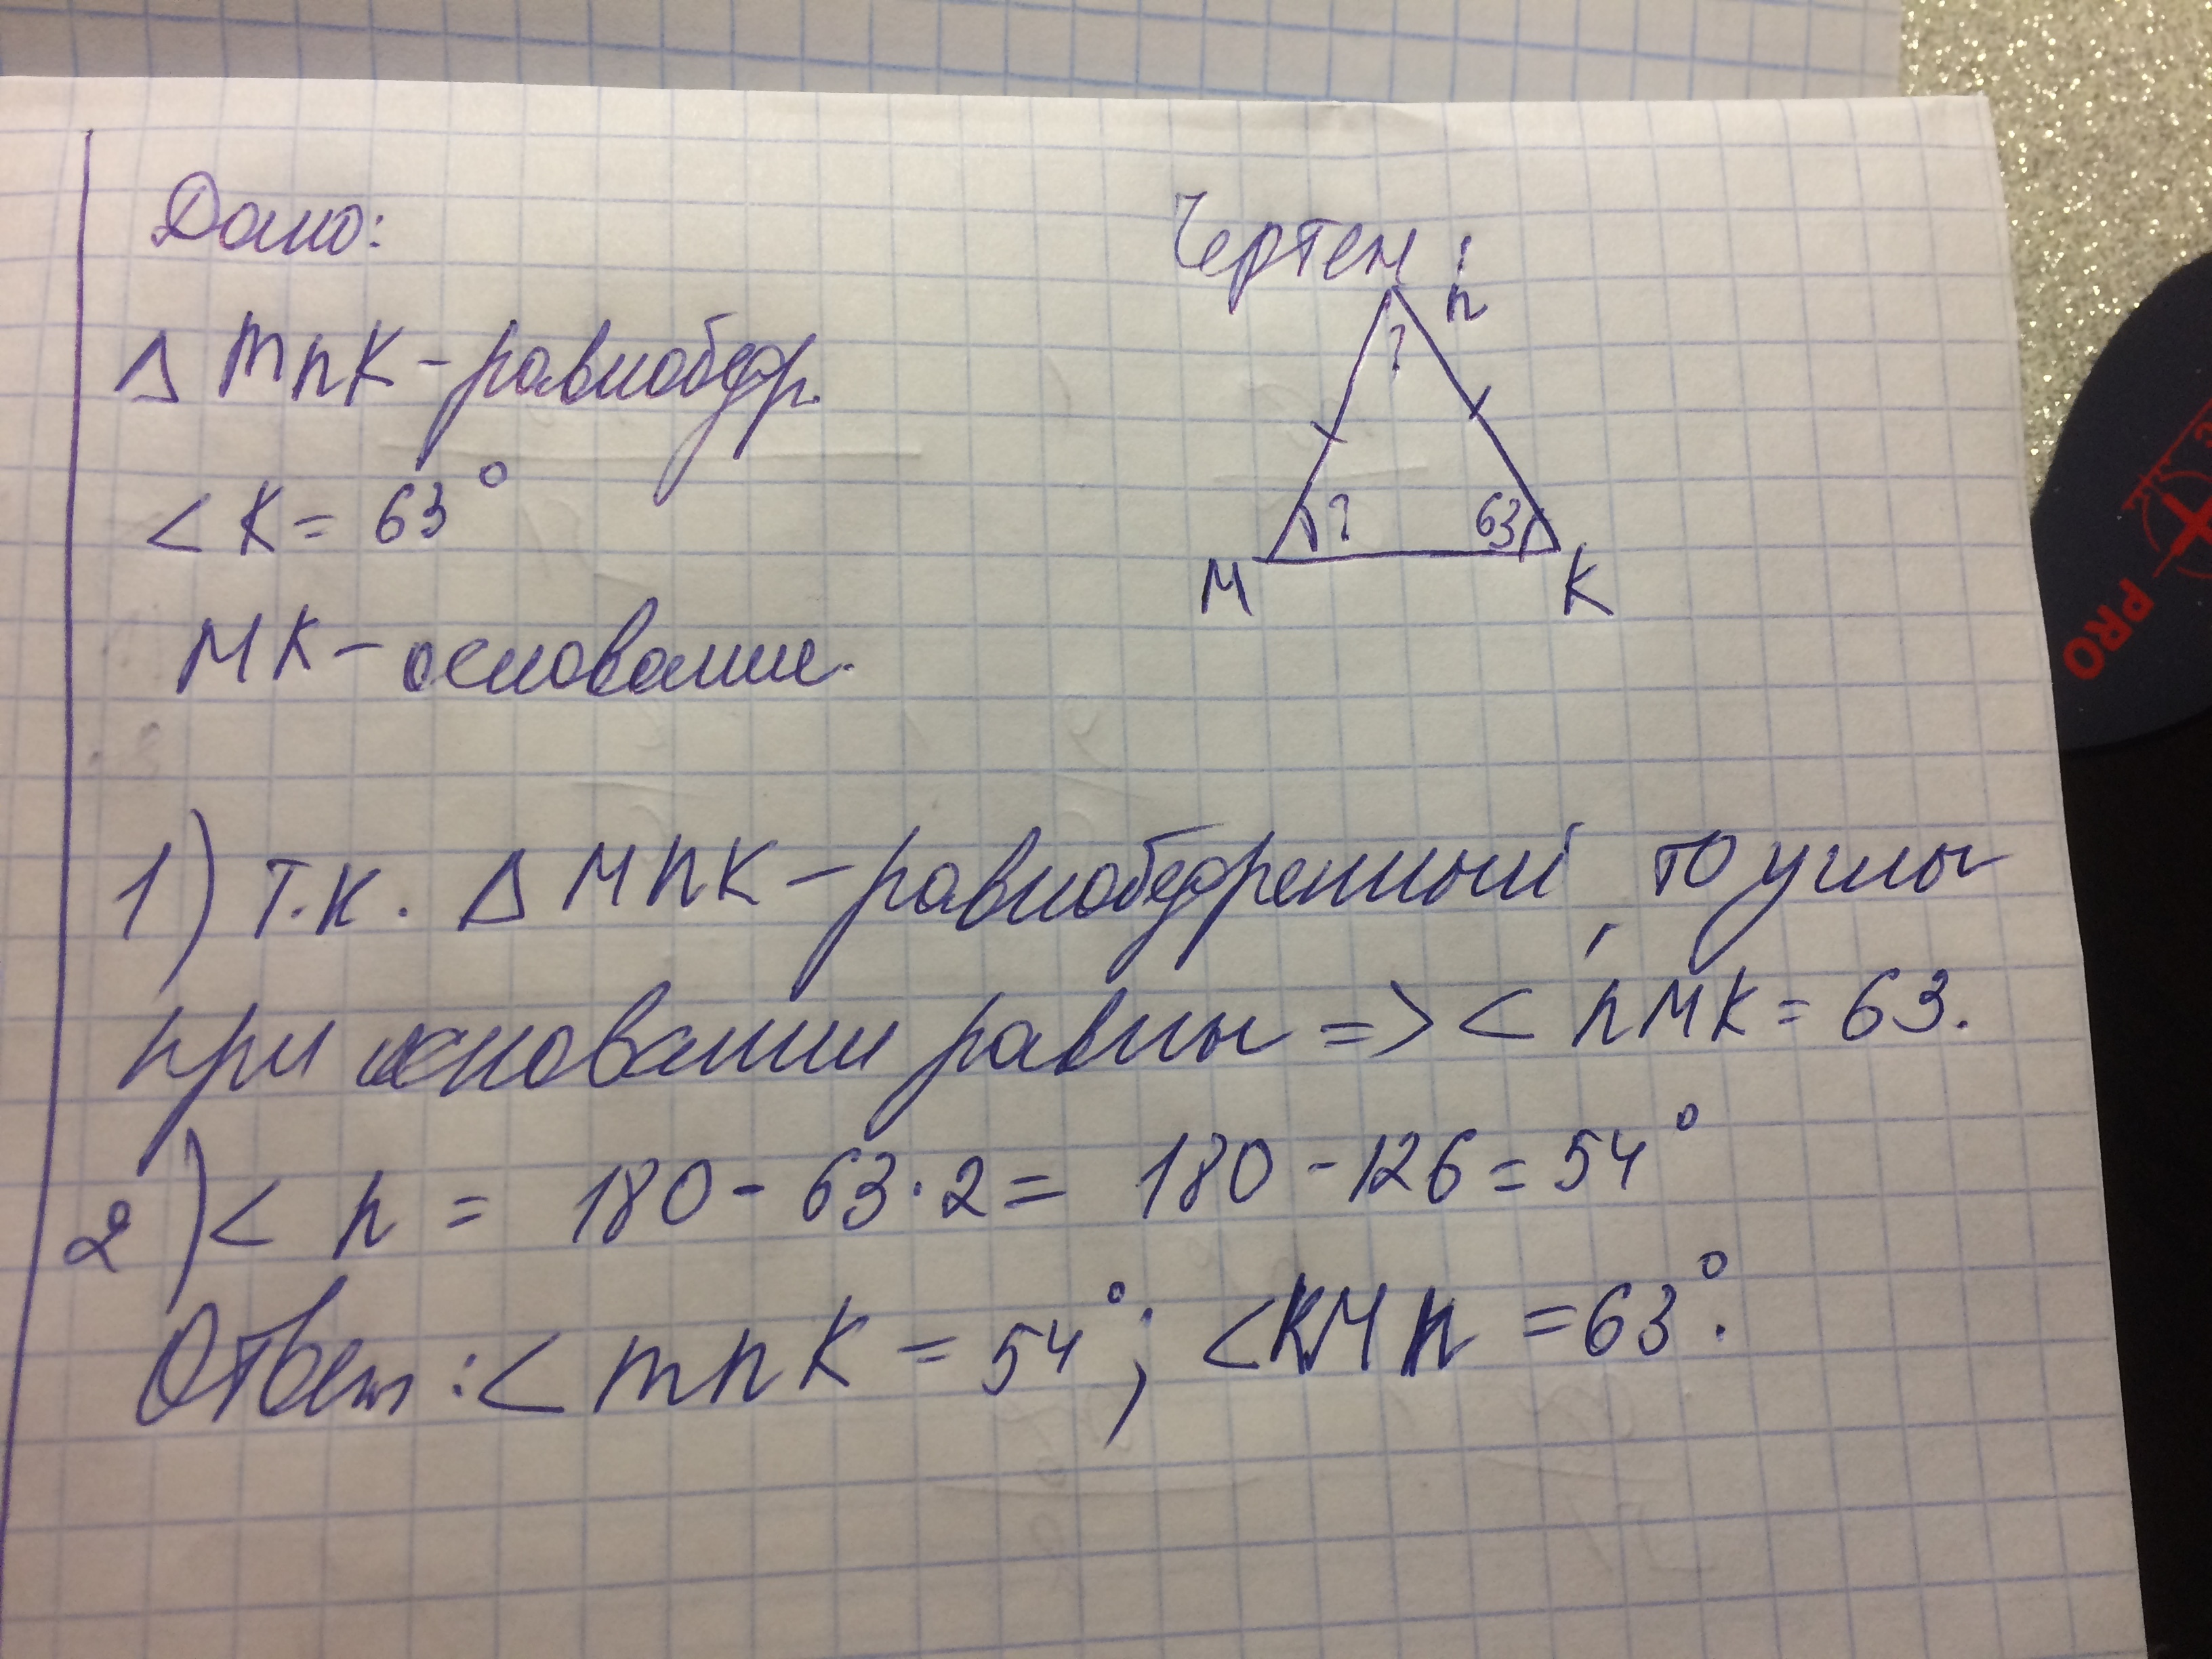 Дано:
Δ mnK - равнобедр.
< K = 63°
MK - основание.
Чертеж:
n
?
? 63
M K
1) т.к. Δ MnK - равнобедренный, то углы
при основании равны => < nMK = 63.
2) < n = 180 - 63·2 = 180 - 126 = 54°
Ответ: < mnK = 54°; < KMn = 63°.
PRO